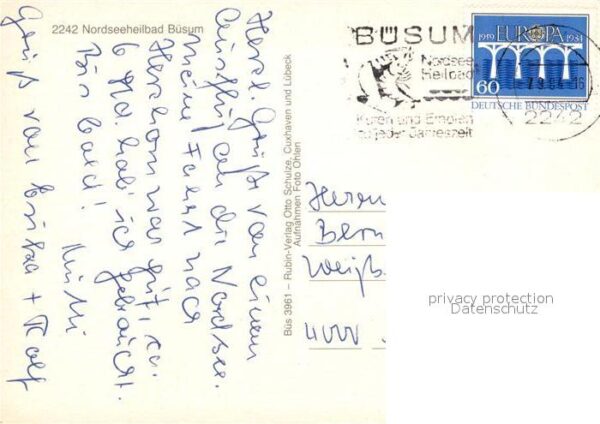 2242 Nordseeheilbad Büsum
Herzl. Grüße von einem
Ausflug an die Nordsee.
Meine Fahrt nach
Herschom war gut, ca.
6 Std hab ich gebraucht.
Bis bald!
Gruß von Erika + Rolf
Büs 3961 – Rubin-Verlag Otto Schulze, Cuxhaven und Lübeck
Aufnahmen Foto Ohlen
BÜSUM
Nordsee
Heilbad
Kuren und Erholen
zu jeder Jahreszeit
2242
1959 EUROPA 1984
60
DEUTSCHE BUNDESPOST
Herrn
Bern
Weiß
privacy protection
Datenschutz